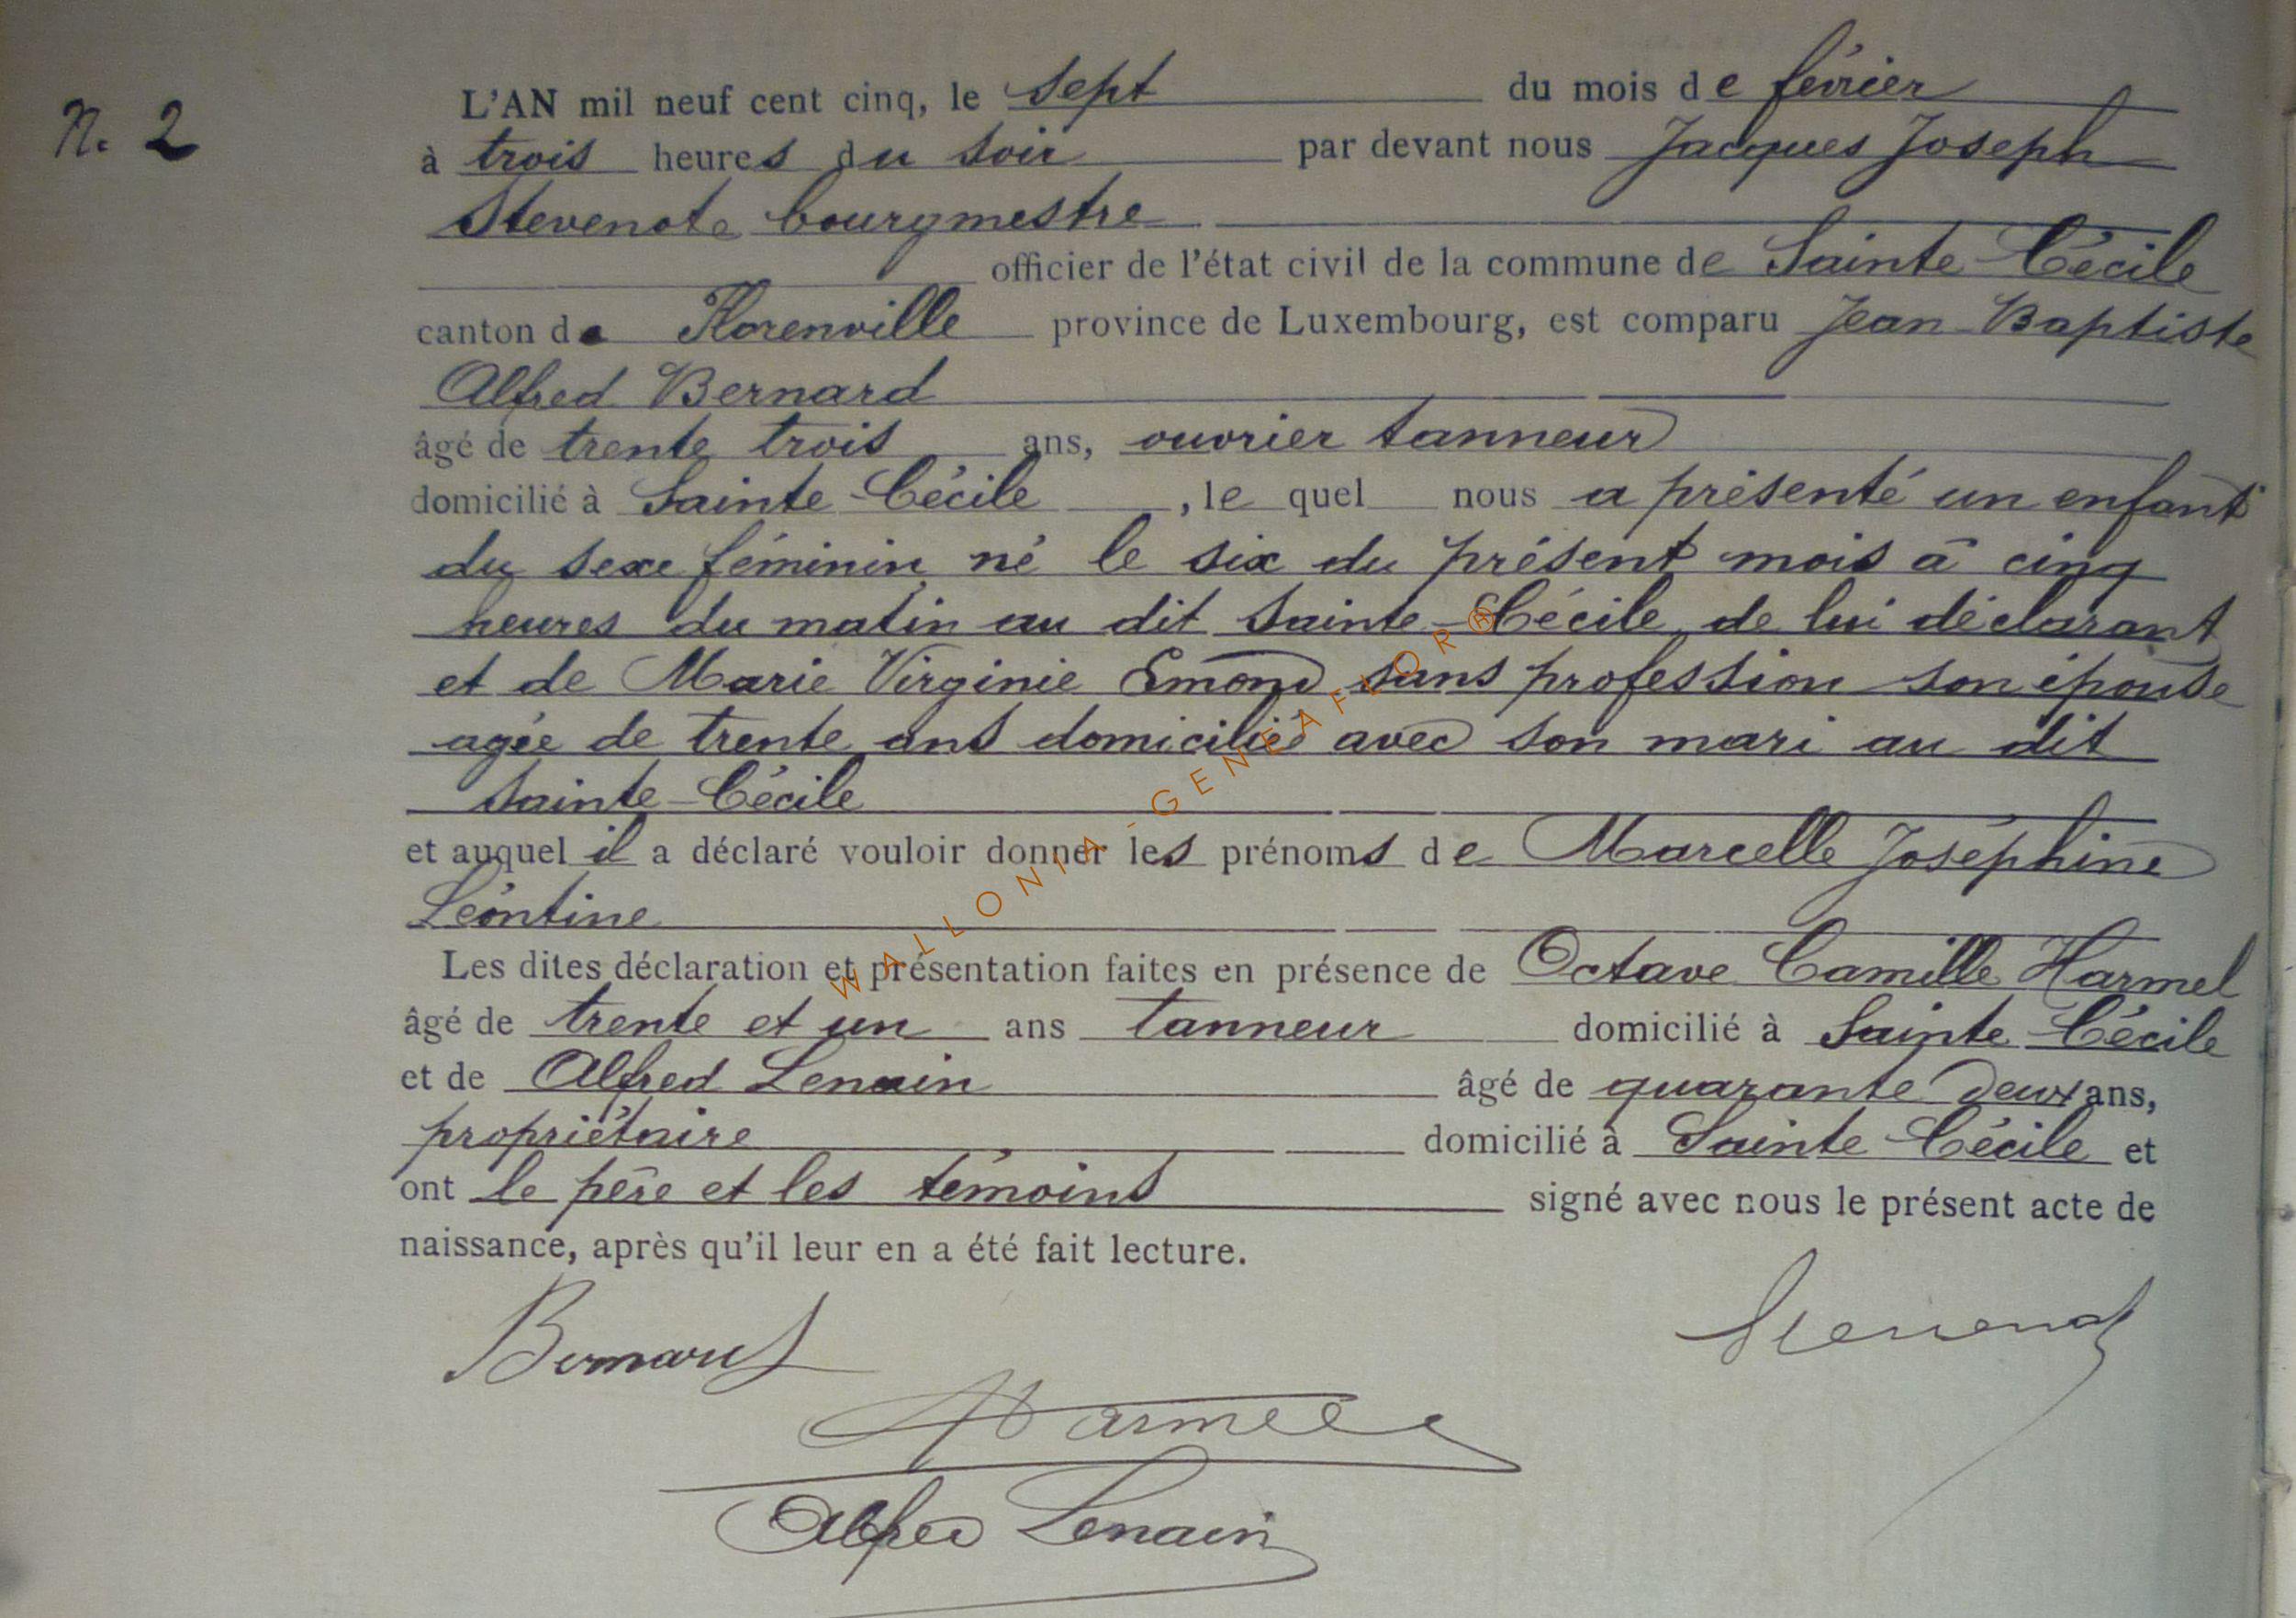 N. 2
L'AN mil neuf cent cinq, le sept du mois de février
à trois heures du soir par devant nous Jacques Joseph
Stevenote bourgmestre
officier de l'état civil de la commune de Sainte Cécile
canton de Florenville province de Luxembourg, est comparu Jean Baptiste
Alfred Bernard
âgé de trente trois ans, ouvrier tanneur
domicilié à Sainte Cécile, le quel nous a présenté un enfant
du sexe féminin né le six du présent mois à cinq
heures du matin au dit Sainte-Cécile de lui déclarant
et de Marie Virginie Emond sans profession son épouse
agée de trente ans domiciliée avec son mari au dit
Sainte-Cécile
et auquel il a déclaré vouloir donner les prénoms de Marcelle Joséphine
Léontine
Les dites déclaration et présentation faites en présence de Octave Camille Harmel
âgé de trente et un ans tanneur domicilié à Sainte Cécile
et de Alfred Lenain âgé de quarante deux ans,
propriétaire domicilié à Sainte Cécile et
ont le père et les témoins signé avec nous le présent acte de
naissance, après qu'il leur en a été fait lecture.
Bernard
Stevenot
Harmel
Alfred Lenain
WALLONIA-GENEAFLOR®